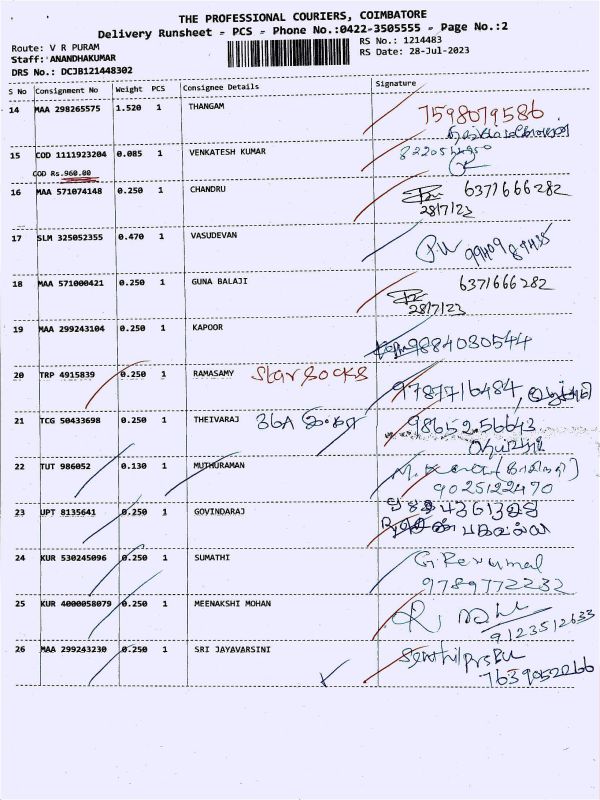 THE PROFESSIONAL COURIERS, COIMBATORE
Delivery Runsheet - PCS - Phone No.:0422-3505555 - Page No.:2
Route: V R PURAM
Staff: ANANDHAKUMAR
DRS No.: DCJB121448302
RS No.: 1214483
RS Date: 28-Jul-2023
S No Consignment No Weight PCS Consignee Details Signature
14 MAA 298265575 1.520 1 THANGAM 7598079586
15 COD 1111923204 0.085 1 VENKATESH KUMAR
COD Rs.960.00
16 MAA 571074148 0.250 1 CHANDRU 6371666282
28/7/23
17 SLM 325052355 0.470 1 VASUDEVAN
18 MAA 571000421 0.250 1 GUNA BALAJI 6371666282
28/7/23
19 MAA 299243104 0.250 1 KAPOOR 9884030544
20 TRP 4915839 0.250 1 RAMASAMY Star socks 9787716484,
21 TCG 50433698 0.250 1 THEIVARAJ 36A 9865256643
22 TUT 986052 0.130 1 MUTHURAMAN
9025122470
23 UPT 8135641 0.250 1 GOVINDARAJ
24 KUR 530245096 0.250 1 SUMATHI G Perumal
9789772232
25 KUR 4000058079 0.250 1 MEENAKSHI MOHAN
9123512633
26 MAA 299243230 0.250 1 SRI JAYAVARSINI
7639052066